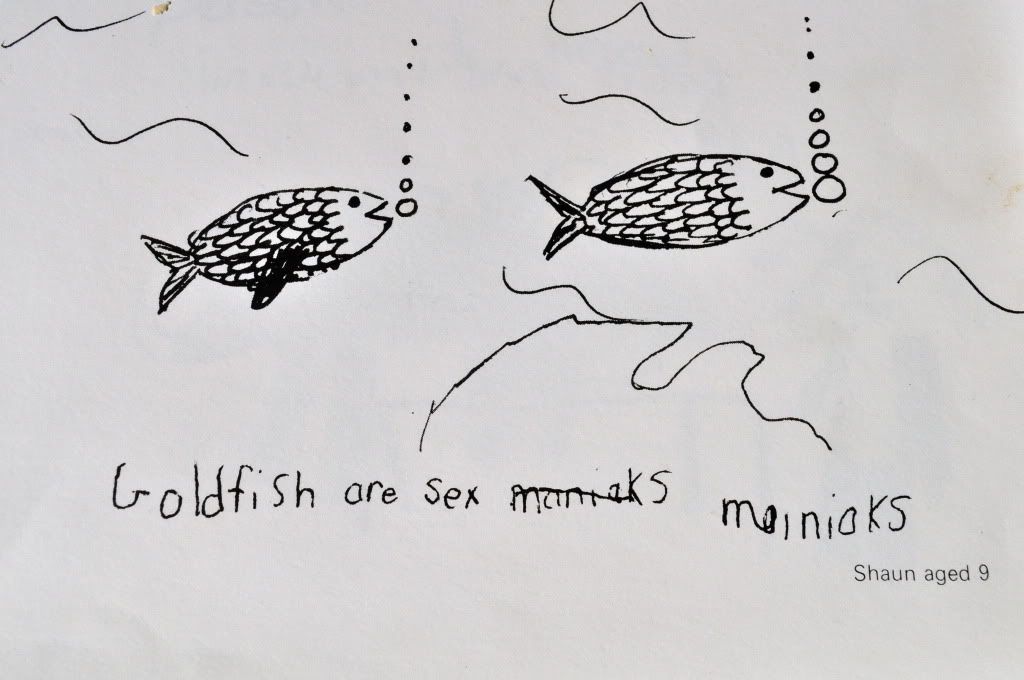 Goldfish are sex maniaks mainiaks
Shaun aged 9